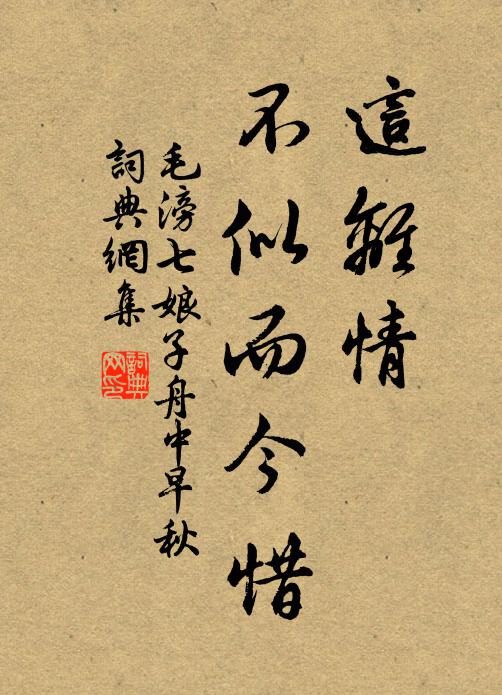 這離情
不似而今惜
毛滂七娘子舟中早秋
詞典網集
詞典网印